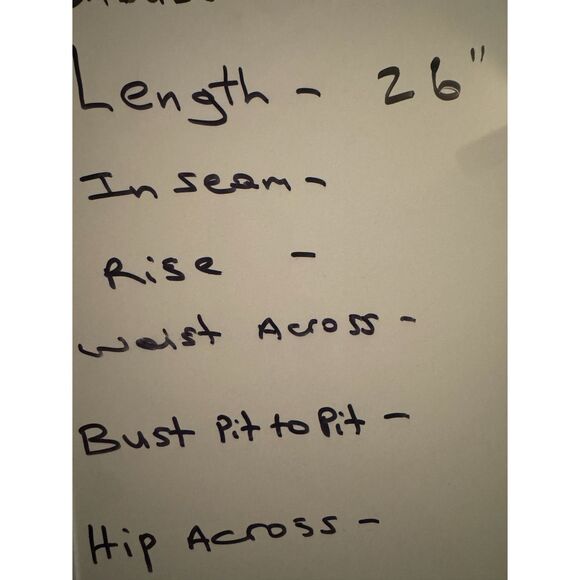 Length - 26"
In seam -
Rise -
Waist Across -
Bust Pit to Pit -
Hip Across -